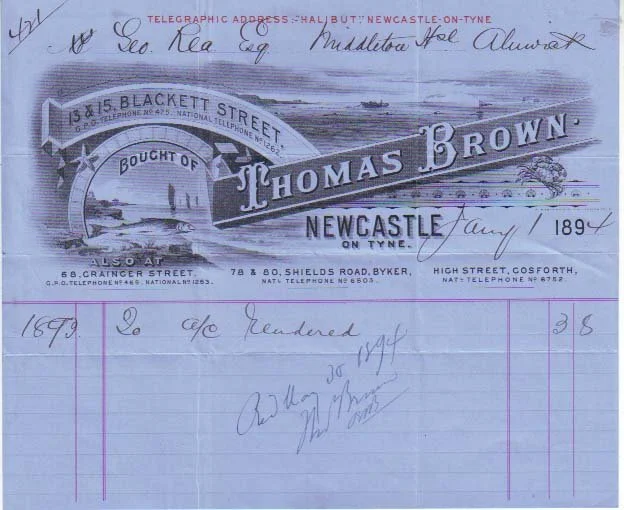 421
TELEGRAPHIC ADDRESS:-"HALIBUT", NEWCASTLE-ON-TYNE
Geo. Rea Esq Middleton Hall Alnwick
13 & 15, BLACKETT STREET,
G.P.O. TELEPHONE Nº 475. NATIONAL TELEPHONE Nº 1262.
BOUGHT OF
THOMAS BROWN.
NEWCASTLE
ON TYNE.
Jany 1 1894
ALSO AT
68, GRAINGER STREET.
G.P.O. TELEPHONE Nº 465. NATIONAL Nº 1263.
78 & 80, SHIELDS ROAD, BYKER,
NATL TELEPHONE Nº 6503.
HIGH STREET, GOSFORTH,
NATL TELEPHONE Nº 6752.
1893. To a/c Rendered 3 8
30 1894
Thos Brown